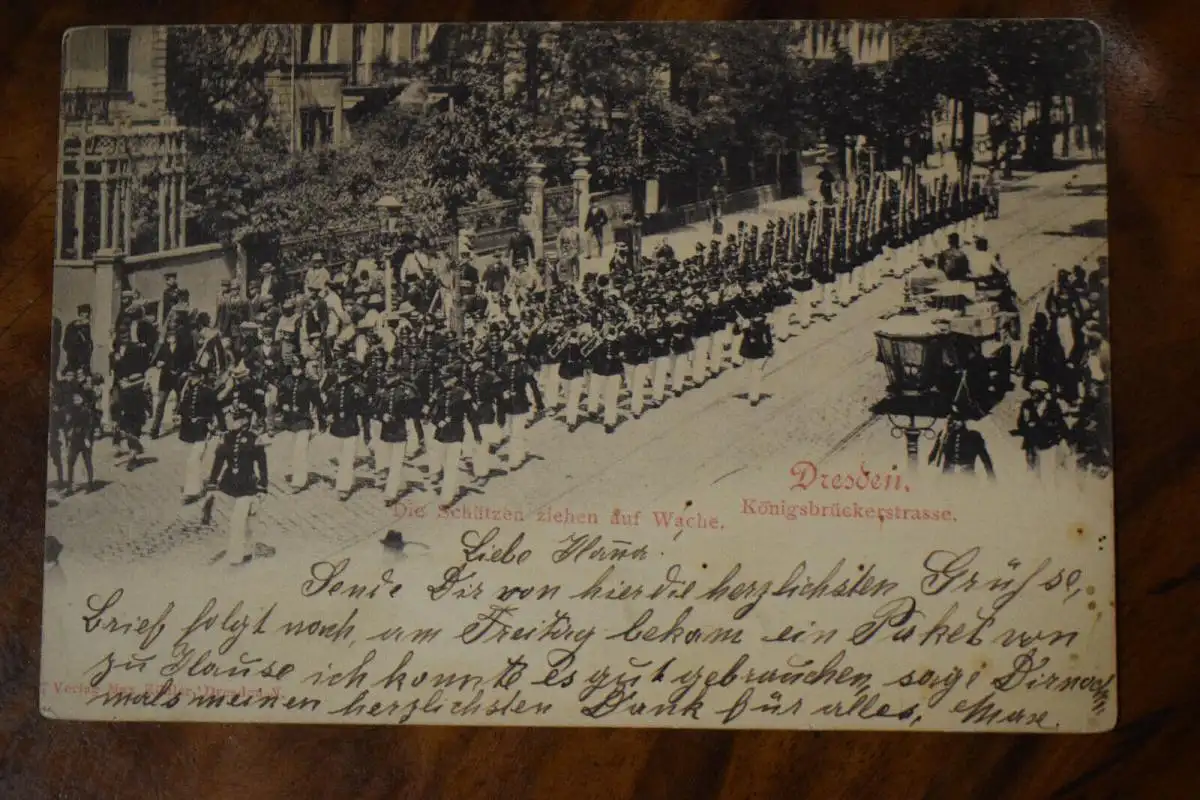 Dresden.
Königsbrückerstrasse.
Die Schützen ziehen auf Wache.
Liebe Hanna.
Sende Dir von hier die herzlichsten Grüße,
Brief folgt noch, am Freitag bekam ein Paket von
zu Hause ich konnte es gut gebrauchen, sage Dir noch
mals meinen herzlichsten Dank für alles, Max.
Verlag Max Dresden-N.